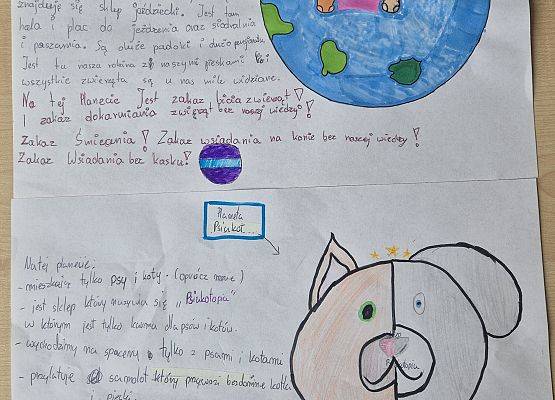 znajduje się sklep jeździecki. Jest tam
hala i plac do jeżdżenia oraz siodlarnia
i paszarnia. Są duże padoki i dużo
Jest tu nasza rodzina z naszymi pieskami
wszystkie zwierzęta są u nas mile widziane.
Na tej Planecie Jest zakaz bicia zwierząt!
I zakaz dokarmiania zwierząt bez naszej wiedzy!
Zakaz Śmiecenia! Zakaz wsiadania na konie bez naszej wiedzy!
Zakaz Wsiadania bez kasku!
Planeta
Psiakot...
Na tej planecie:
- mieszkają tylko psy i koty. (oprócz mnie)
- jest sklep który nazywa się "Psiakotopia"
w którym jest tylko karma dla psów i kotów.
- wychodzimy na spacery tylko z psami i kotami
- przylatuje samolot który przywozi bezdomne kotki
i pieski.